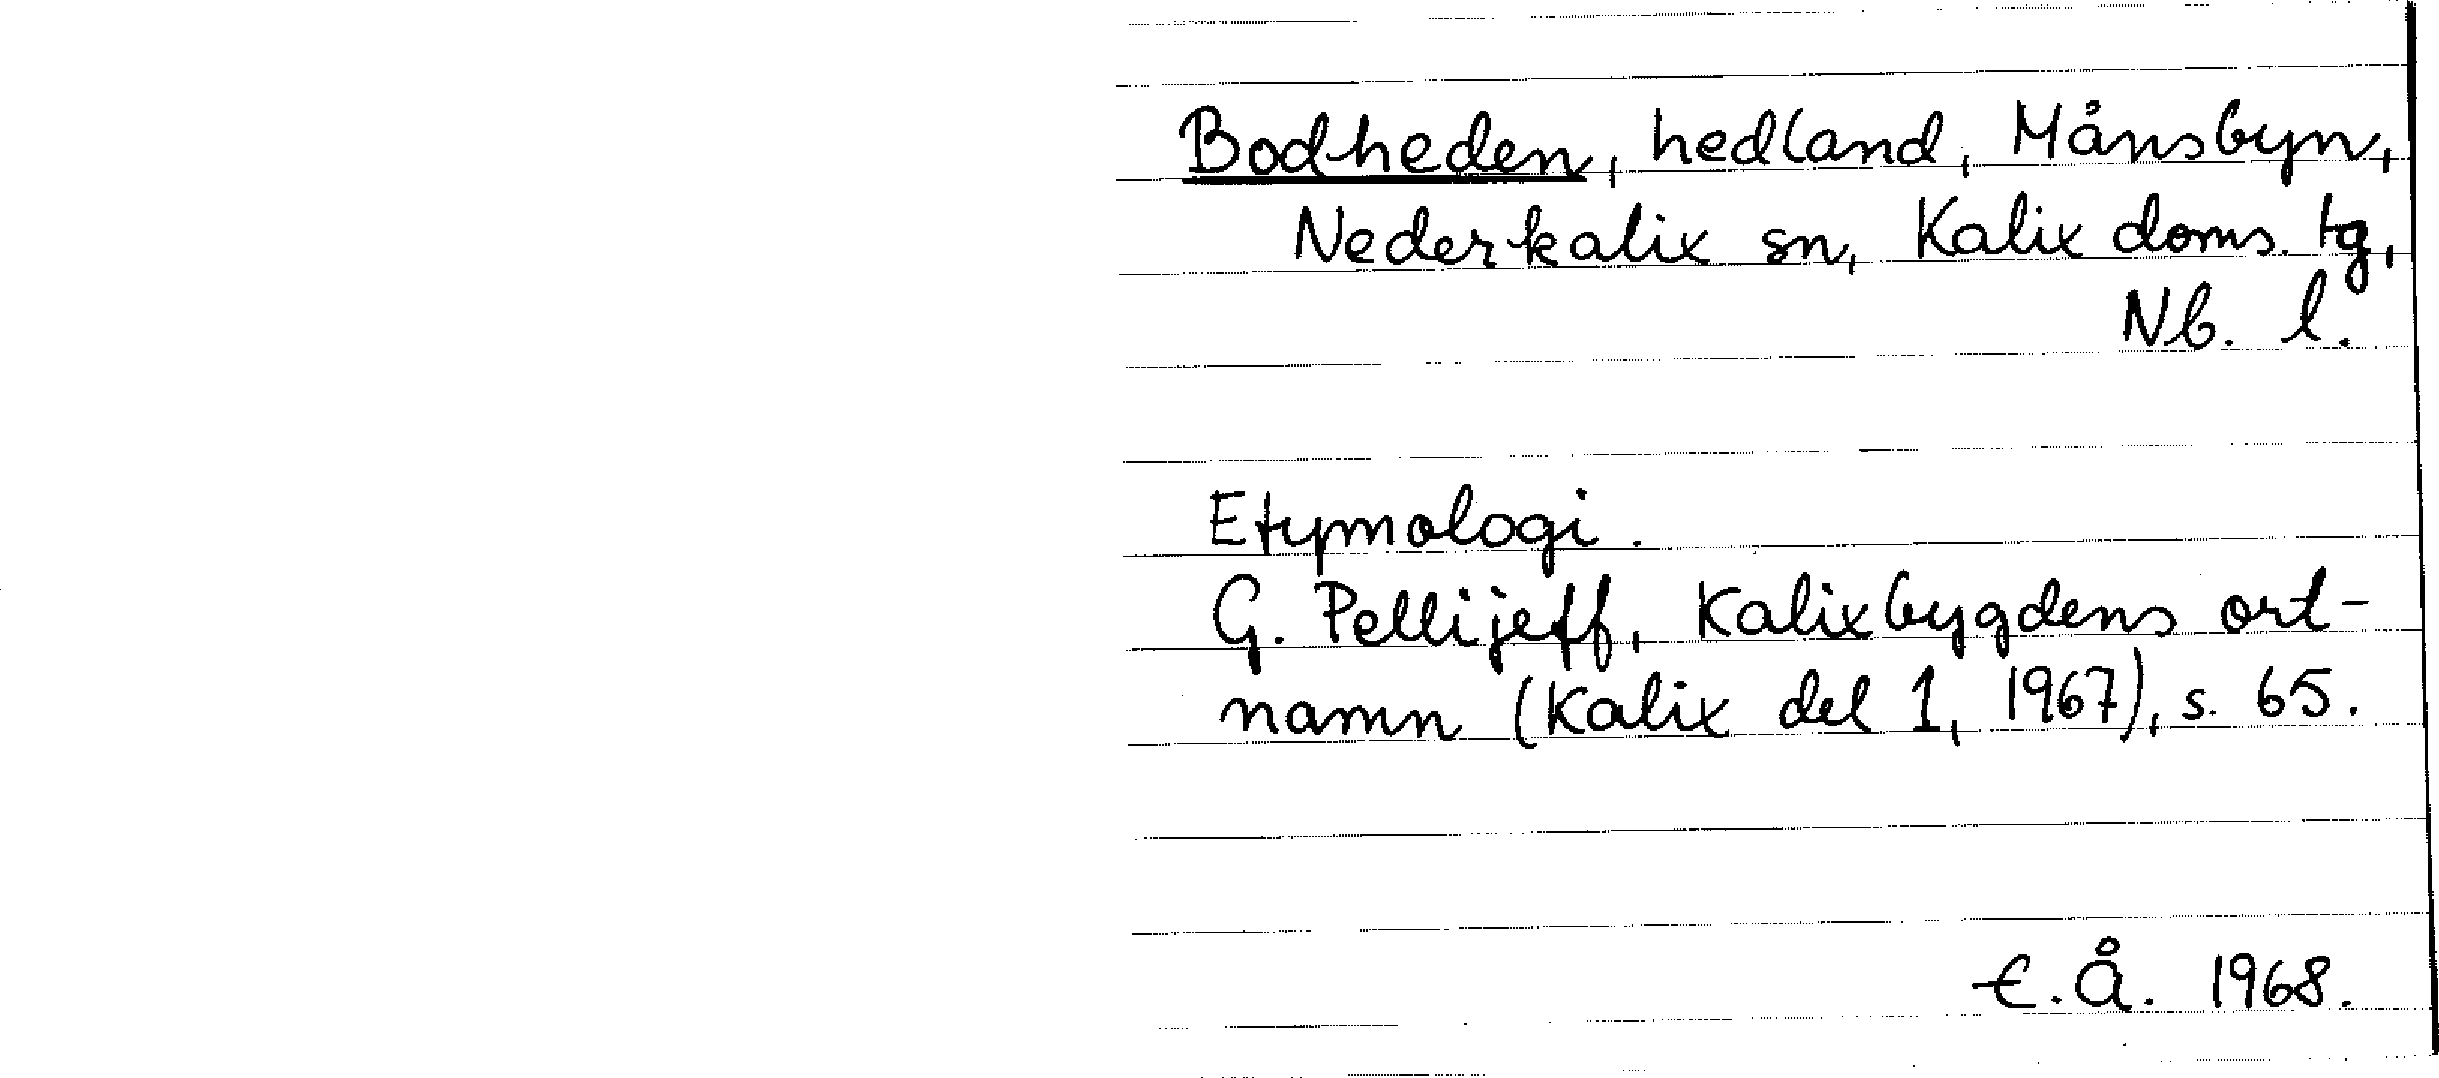 Bodheden, hedland, Månsbyn,
Nederkalix sn, Kalix doms. tg,
Nb. l.
Etymologi.
G. Pellijeff, Kalixbygdens ort-
namn (Kalix del 1, 1967), s. 65.
E.Å. 1968.